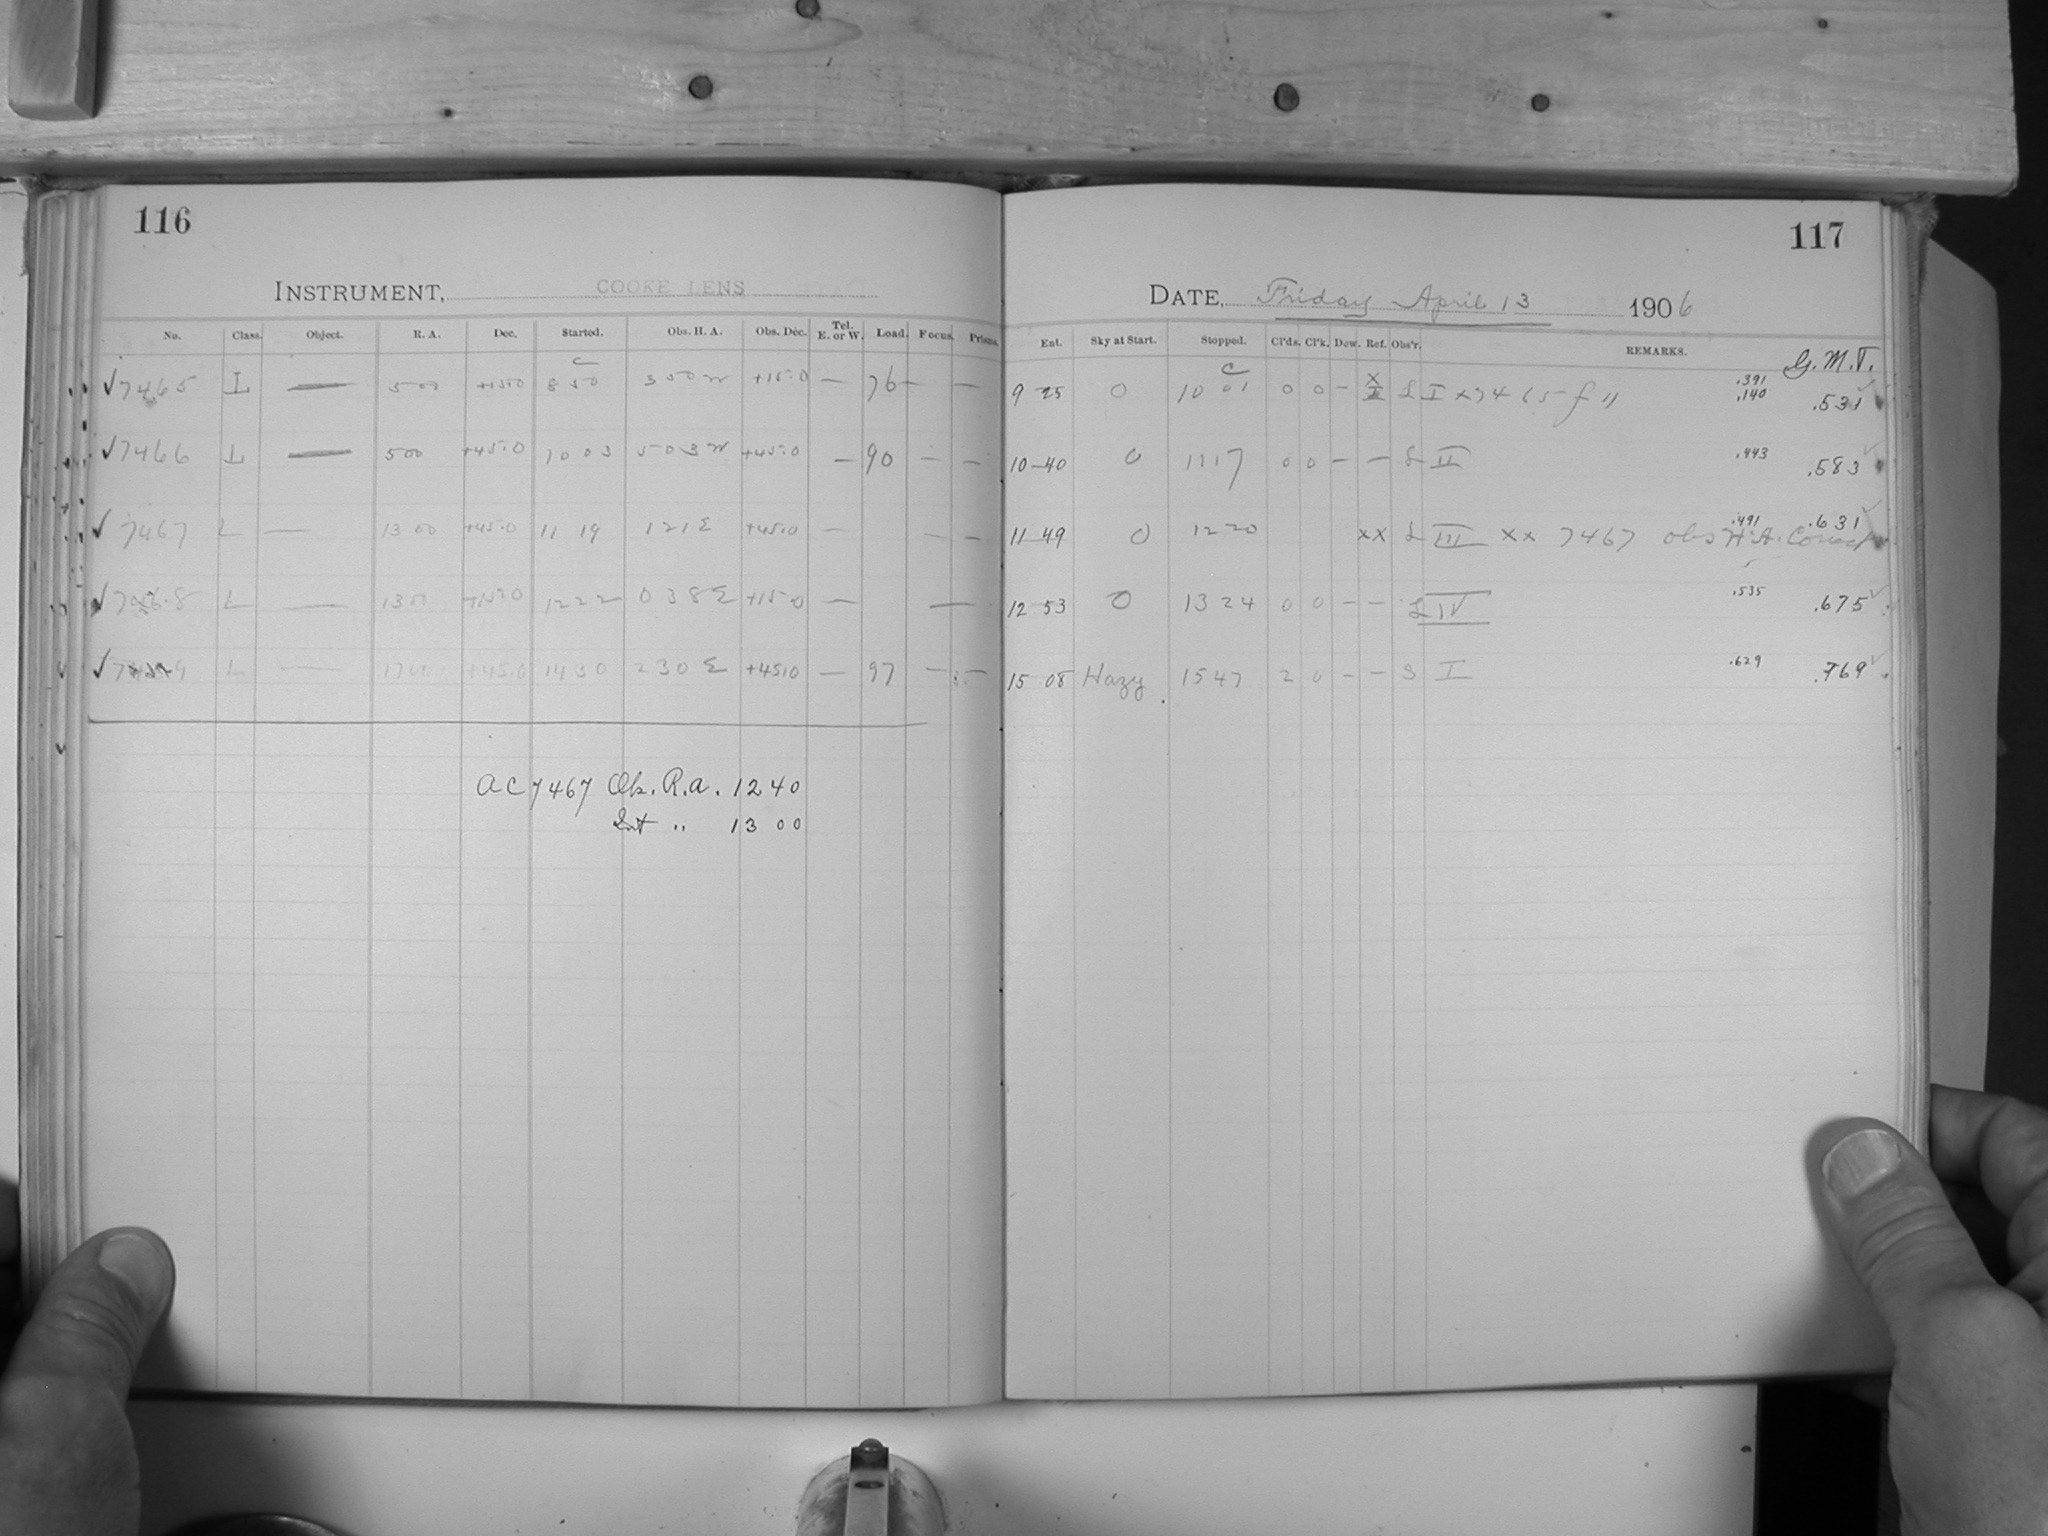 116
INSTRUMENT, COOKE LENS
No. Class. Object. R. A. Dec. Started. Obs. H. A. Obs. Dec. Tel. E. or W. Load. Focus. Prisms.
C
✓7465 L — 500 +15.0 8 50 3 50 W +15.0 — 76 — —
✓7466 L — 500 +45.0 10 03 5 03 W +45.0 — 90 — —
✓ 7467 L — 13 00 +45.0 11 19 1 21 E +45.0 — — —
7468 L — 1300 +15.0 1222 0 38 E +15.0 — —
✓ L — 1700 +45.0 1430 2 30 E +45.0 — 97 — —
AC 7467 Ob. R.a. 12 40
Int " 13 00
117
DATE, Friday April 13 1906
Ent. Sky at Start. Stopped. Cl'ds. Cl'k. Dew. Ref. Obs'r. REMARKS. G.M.T.
C
9 25 0 10 01 0 0 — X L I x 7465 .391 .140 .531 ✓
10—40 0 1117 0 0 — — L II .443 .583 ✓
11—49 0 1220 XX L III XX 7467 obs H.A. Correct .491 .631 ✓
12—53 0 1324 0 0 — — L IV .535 .675 ✓
15—08 Hazy 1547 2 0 — — S I .629 .769 ✓